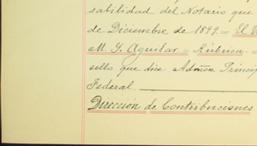 sabilidad del Notario que
de Diciembre de 1899 = El D
M. Y. Aguilar = Rúbrica =
sello que dice Admón Princip
Federal
Dirección de Contribuciones